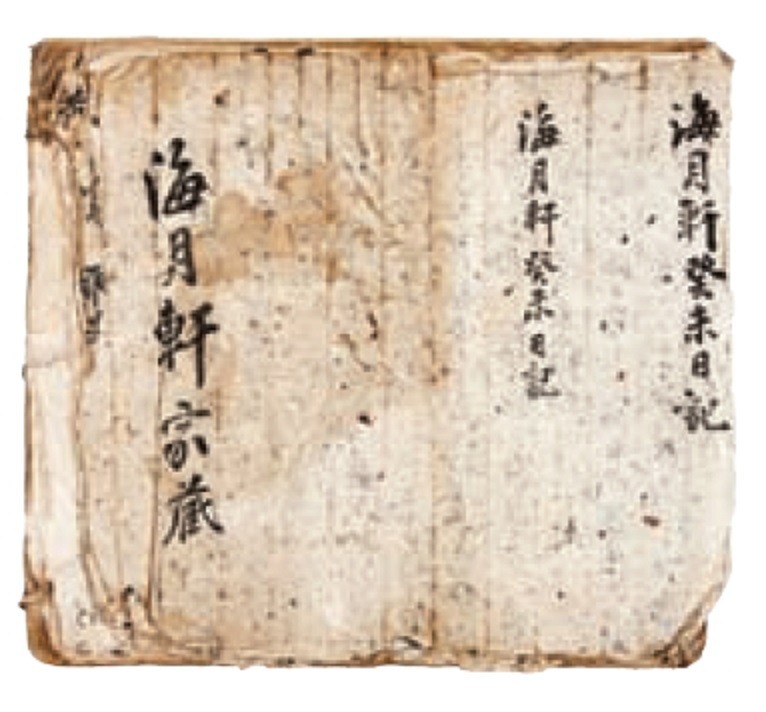 海月軒癸未日記
海月軒癸未日記
海月軒宗藏